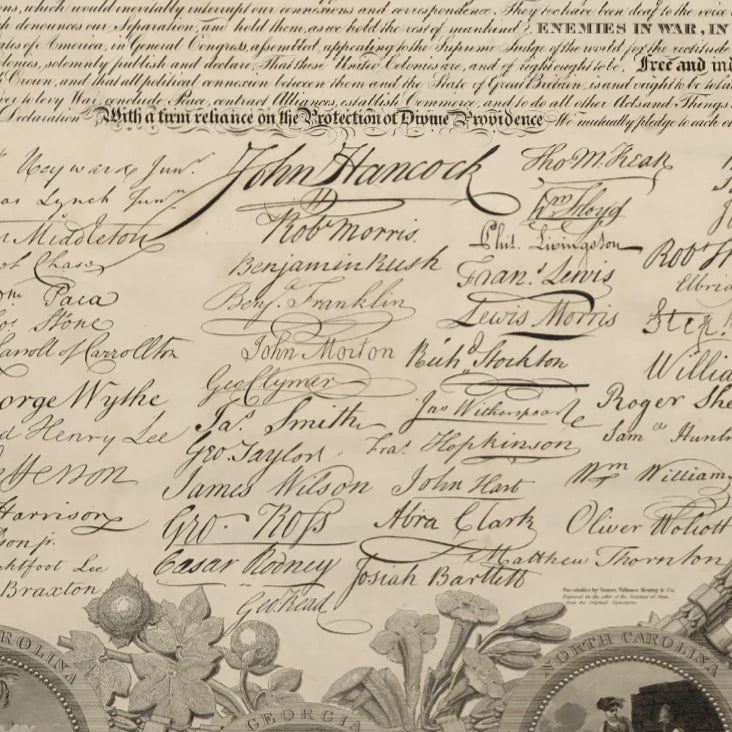 ns, which would inevitably interrupt our connexions and correspondence. They too have been deaf to the voice
h denounces our Separation, and hold them, as we hold the rest of mankind, ENEMIES IN WAR, IN
ates of America, in General Congress, assembled, appealing to the Supreme Judge of the world for the rectitude
lonies, solemnly publish and declare, That these United Colonies are, and of right ought to be, Free and ind
Crown, and that all political connexion between them and the State of Great Britain, is and ought to be tota
ver to levy War, conclude Peace, contract Alliances, establish Commerce, and to do all other Acts and Things
Declaration With a firm reliance on the Protection of Divine Providence We mutually pledge to each o
Heyward Junr.
Lynch Junr.
Middleton
Chase
Wm Paca
Stone
Carroll of Carrollton
orge Wythe
Henry Lee
efferson
Harrison
son jr.
ghtfoot Lee
Braxton
John Hancock
Robt Morris.
Benjamin Rush
Benj. Franklin
John Morton
Geo Clymer
Jas. Smith
Geo. Taylor
James Wilson
Geo. Ross
Caesar Rodney
Geo Read
Tho M. Kean
Wm Floyd
Phil. Livingston
Frans. Lewis
Lewis Morris
Richd. Stockton
Jno Witherspoon
Fras. Hopkinson
John Hart
Abra Clark
Josiah Bartlett
Robt
Elbri
Step.
Willia
Roger She
Saml Hunt
Wm Williams
Oliver Wolcott
Matthew Thornton
Engraved in the office of the Secretary of State,
from the Original Signatures.
CAROLINA
GEORGIA
NORTH CAROLINA